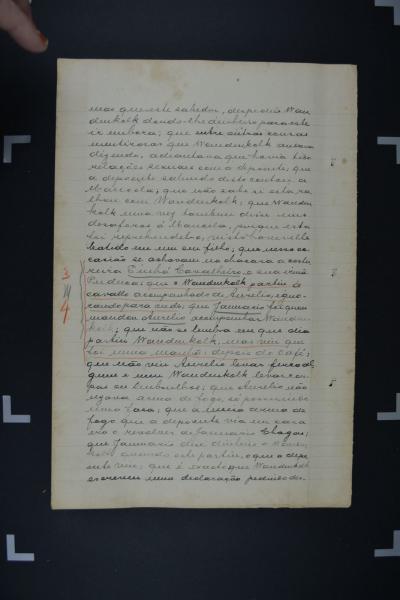 mas que este sabedor, despediu Wan
denkolk dando-lhe dinheiro para este
ir embora; que entre outras cousas
mentirosas que Wandenkolk andava
dizendo, adiantava que havia tido
relações sexuaes com a depoente; que
a depoente sabendo disto contou a
Manoela; que não sabe si esta ra-
lhou com Wandenkolk; que Wanden
kolk uma vez tambem disse uns
desaforos á Manoela, porque esta
foi reprehendel-o, visto haver elle
batido em um seu filho; que nessa oc-
casião se achavam na chacara a costu
reira Cavalheiro e sua irmã
que Wandenkolk partiu á
cavallo acompanhado de Aurelio, 
que Januario foi quem
mandou Aurelio acompanhar Wanden
kolk; que não se lembra em que dia
partiu Wandenkolk, mas sim que
foi numa manhã, depois do café;
que não viu Aurelio levar
que e nem Wandenkolk levar rou-
pas ou embrulhos; que Aurelio não
uzava arma de fogo, só possuindo
uma faca; que a unica arma de
fogo que a depoente via em casa
era o revolver de Januario Chagas;
que Januario deu dinheiro a Wanden
kolk quando este partiu, o que a depo
ente viu; que é exacto que Wandenkolk
escreveu uma declaração pedindo des-
3
4